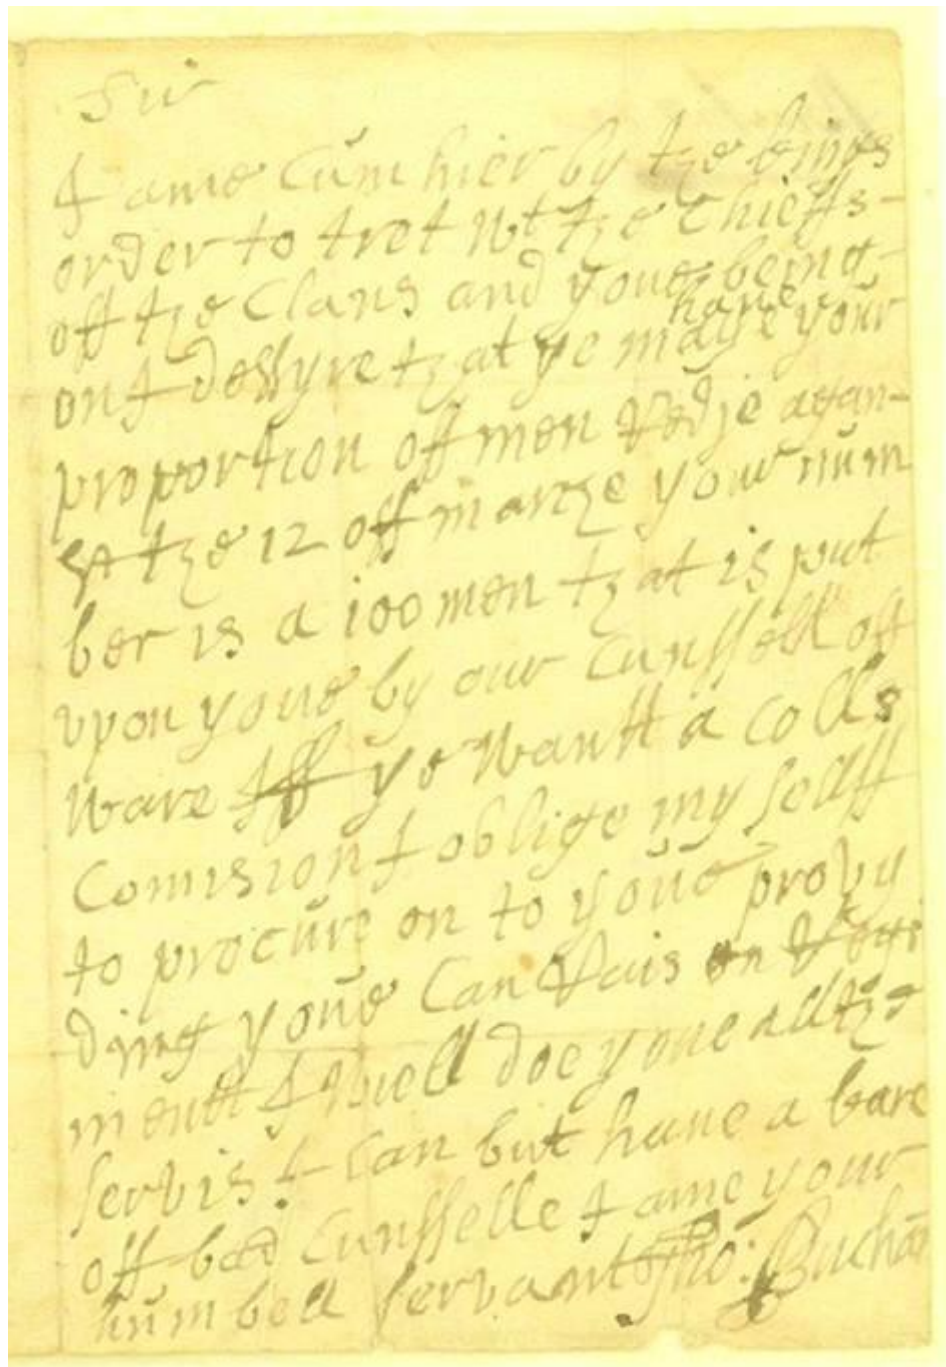 Sir
I ame cum hier by the kings
order to tret wt the Chieffs
off the Clans and youe being
on I dessyre that ye maye have your
proportion off men redje agan-
st the 12 off marche your num
ber is a 100 men that is put
upon youe by our Cunssell off
ware Iff ye wantt a Colls
Comision I oblige my sellff
to procure on to youe provy
ding youe Can rais on regi
mentt I well doe youe all the
servis I can but haue a bare
off bad Cunsselle I ame your
humbell servant Tho: Buchan